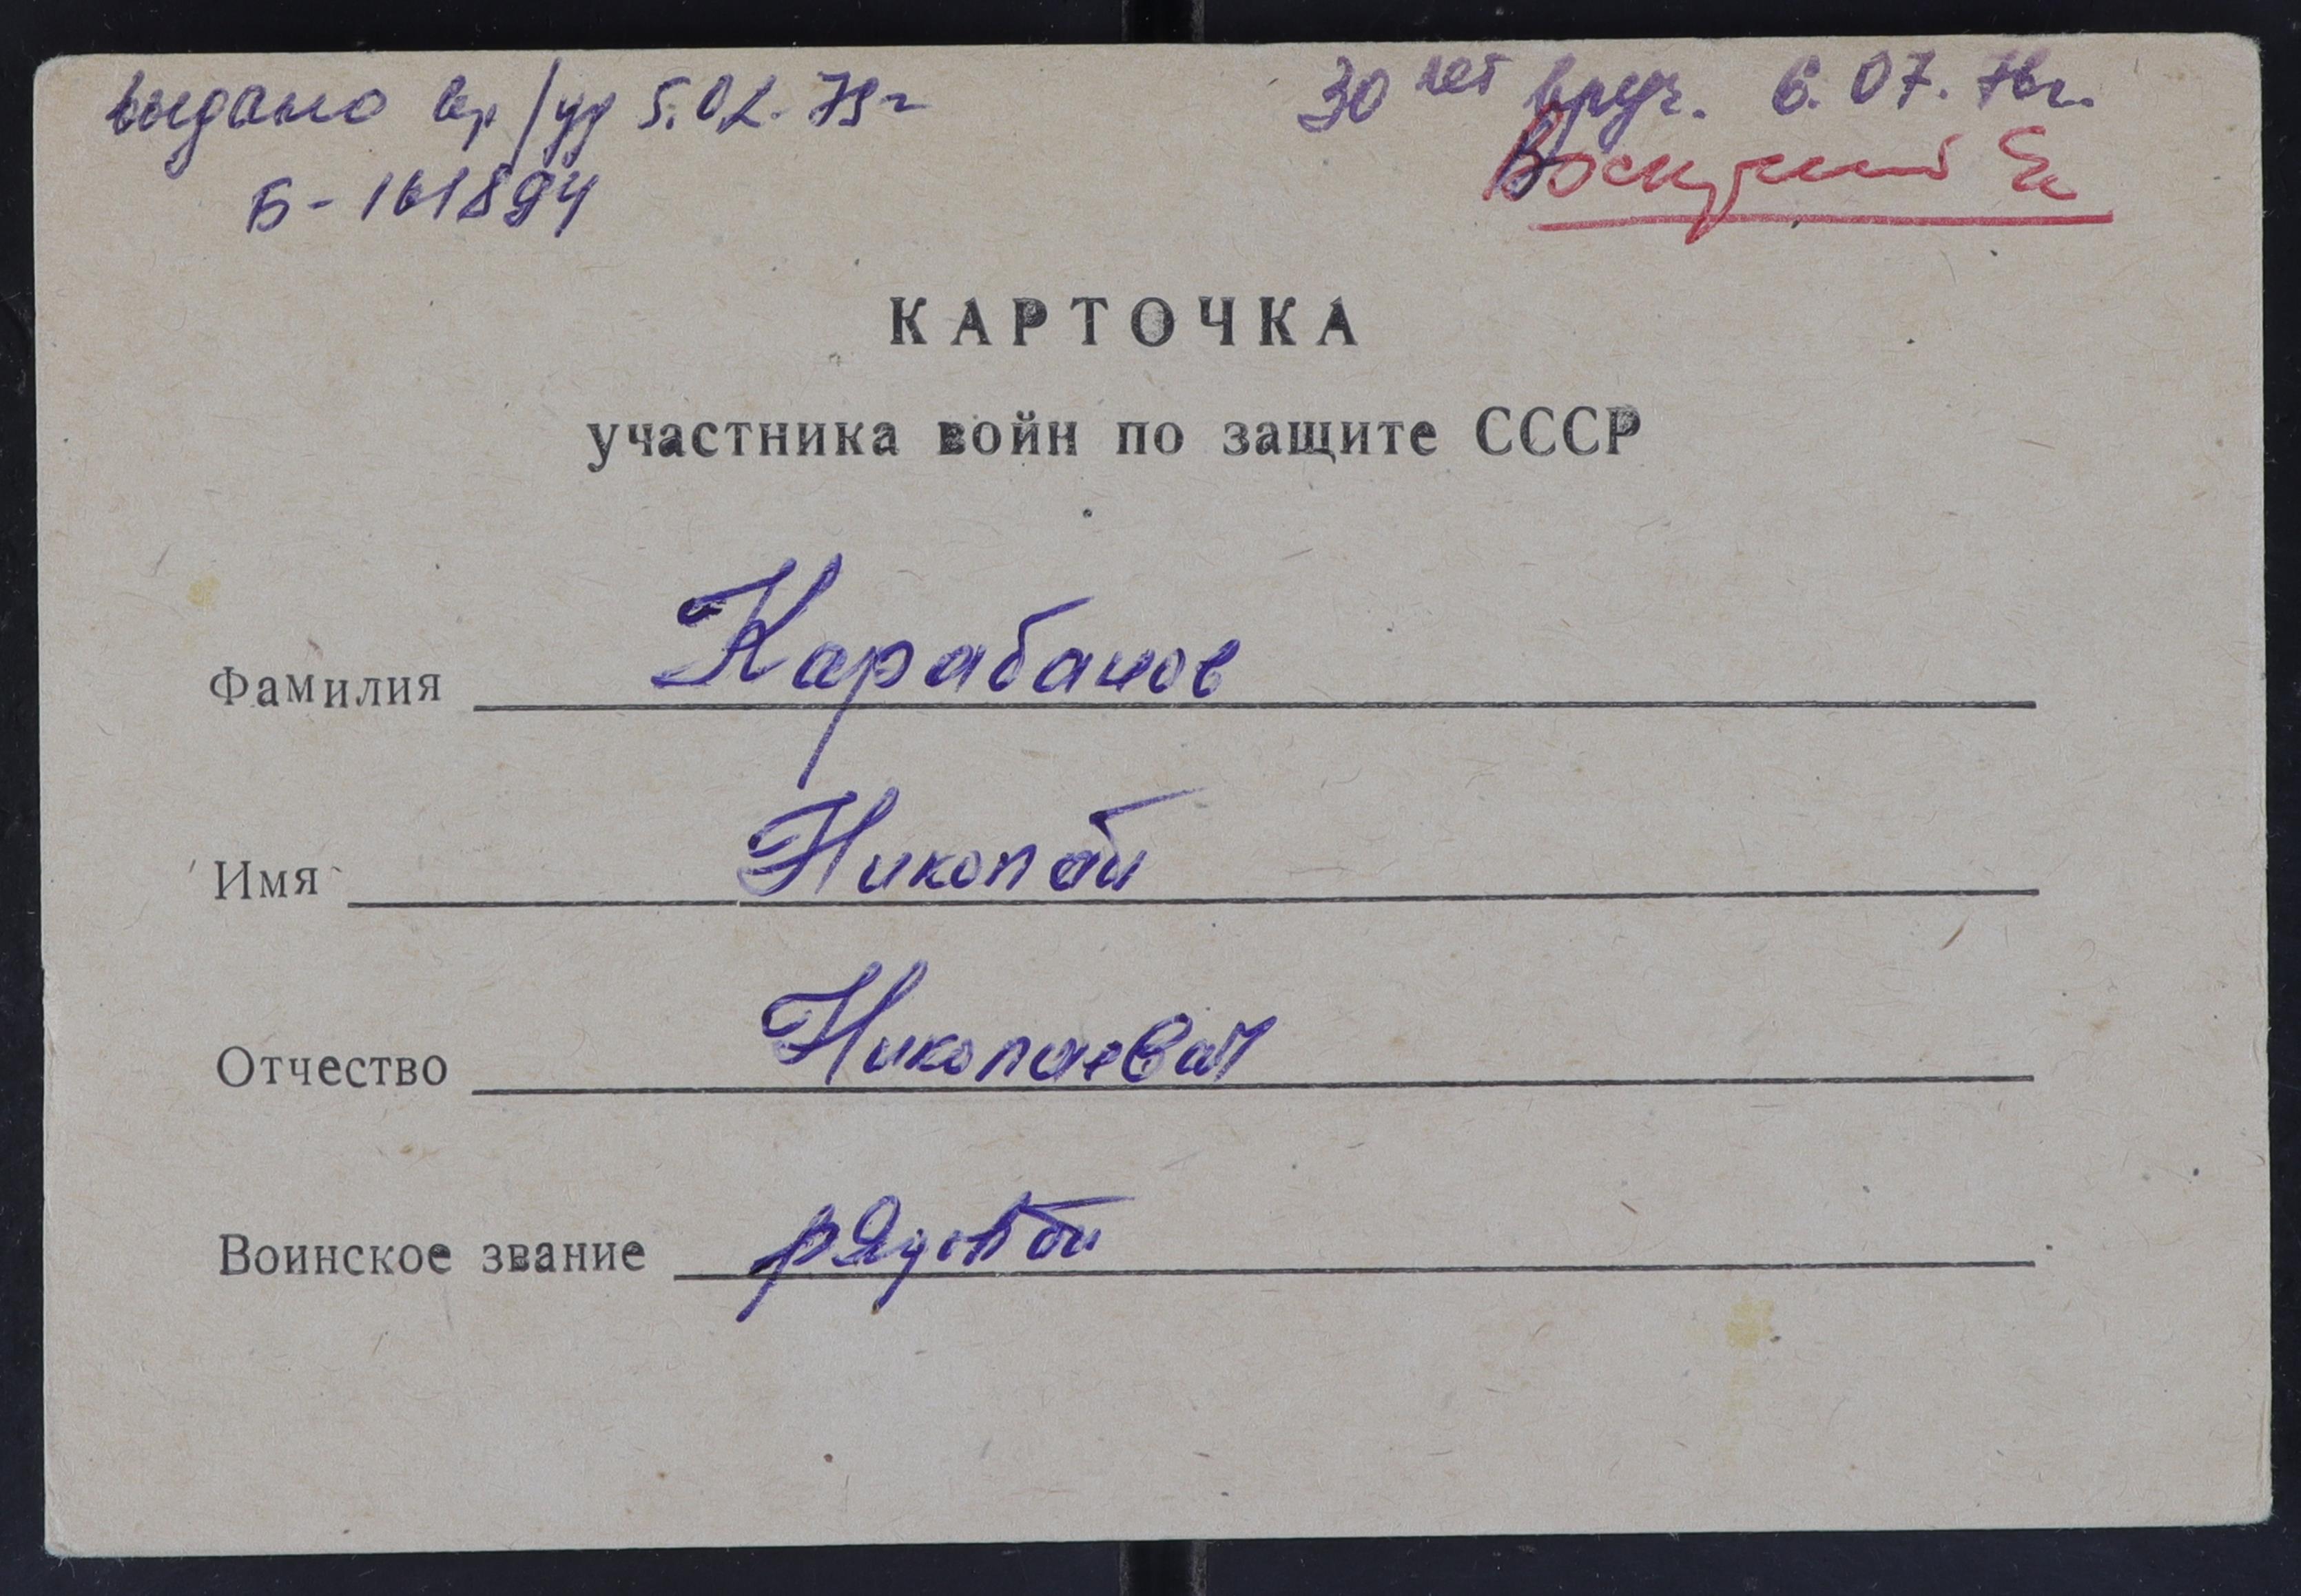 выдано вр/уд 5.02.79г
Б-161894
30 лет вруч. 6.07.76г.
КАРТОЧКА
участника войн по защите СССР
Фамилия Карабанов
Имя Николай
Отчество Николаевич
Воинское звание рядовой